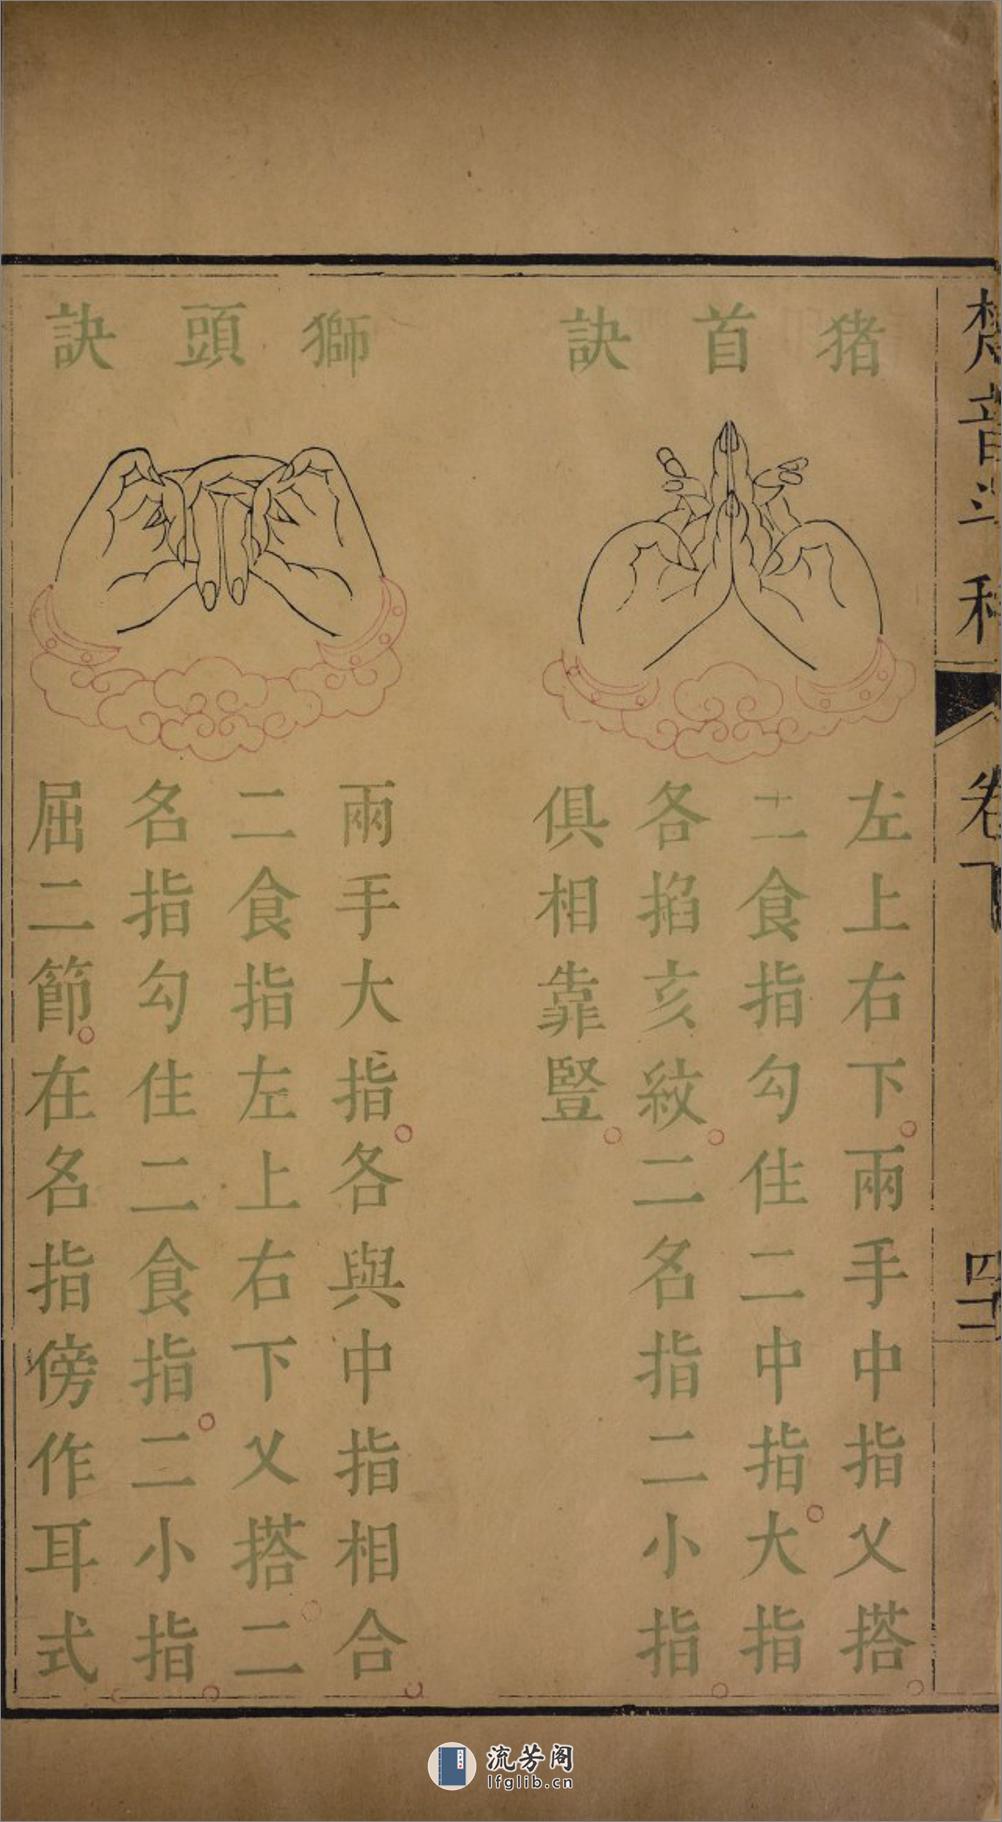 梵音斗科
卷下
四十二
猪首訣
左上右下。兩手中指乂搭。
二食指勾住二中指。大指
各掐亥紋。二名指二小指。
俱相靠豎。
獅頭訣
兩手大指。各與中指相合。
二食指左上右下乂搭。二
名指勾住二食指。二小指。
屈二節。在名指傍作耳式。
流芳阁
lfglib.cn